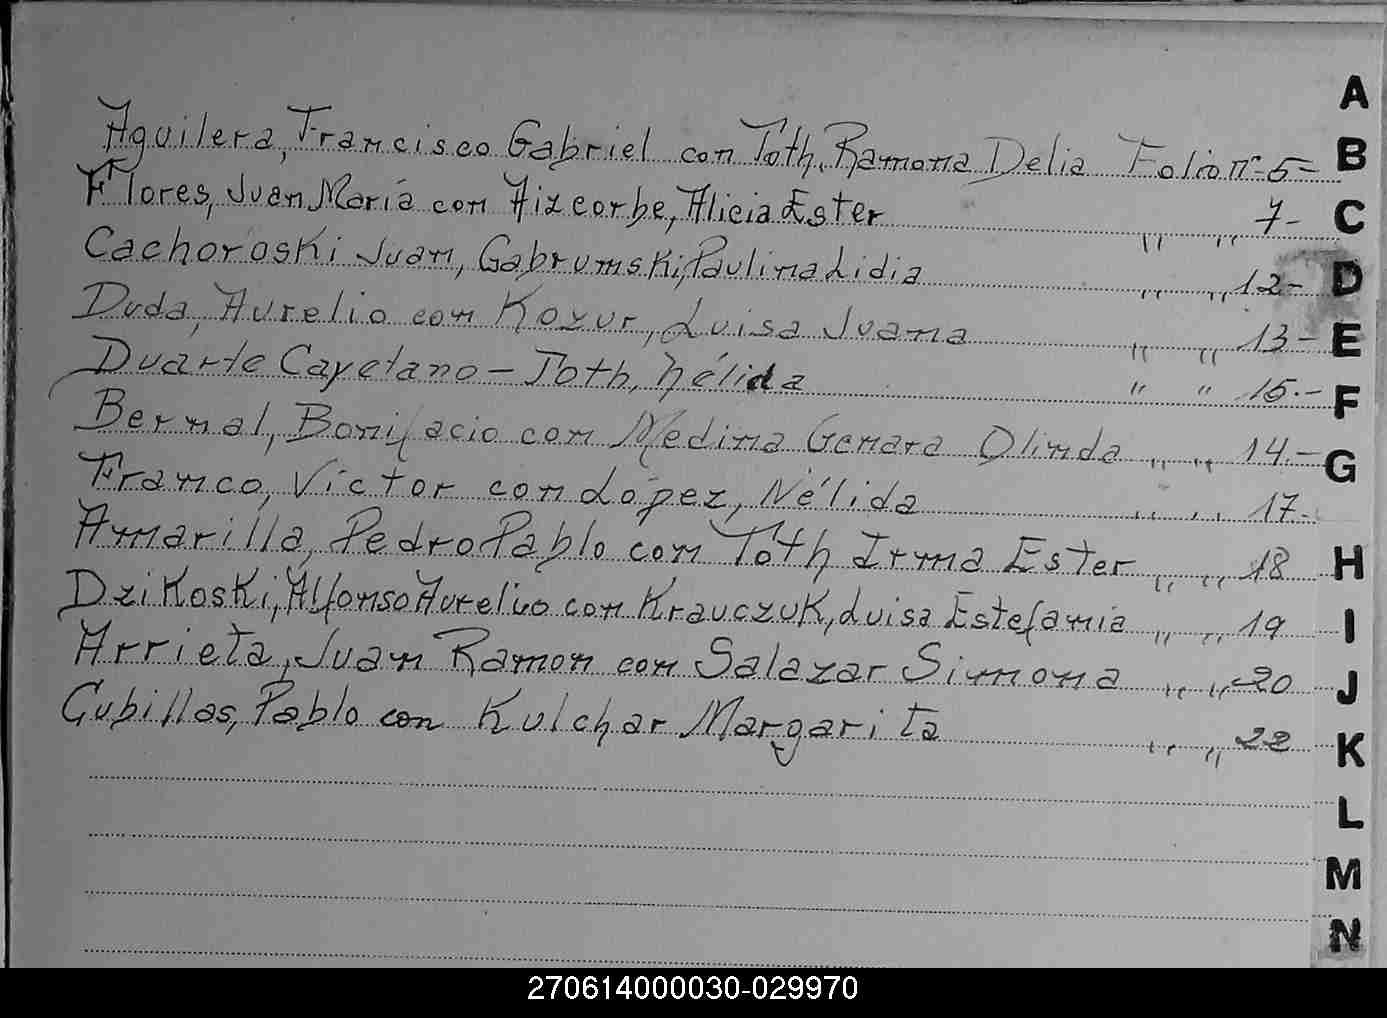 Aguilera, Francisco Gabriel con Toth, Ramona Delia Folio nº 5-
Flores, Juan María con Aizcorbe, Alicia Ester " " 7-
Cachoroski Juan, Gabrumski, Paulina Lidia " " 12-
Duda, Aurelio con Kozur, Luisa Juana " " 13-
Duarte Cayetano - Toth, Nélida " " 15.-
Bernal, Bonifacio con Medina Genara Olinda " " 14.-
Franco, Víctor con López, Nélida " " 17.-
Amarilla, Pedro Pablo con Toth Irma Ester " " 18
Dzikoski, Alfonso Aurelio con Krauczuk, Luisa Estefania " " 19
Arrieta, Juan Ramon con Salazar Simona " " 20
Cubillas, Pablo con Kulchar Margarita " " 22
A
B
C
D
E
F
G
H
I
J
K
L
M
N
270614000030-029970